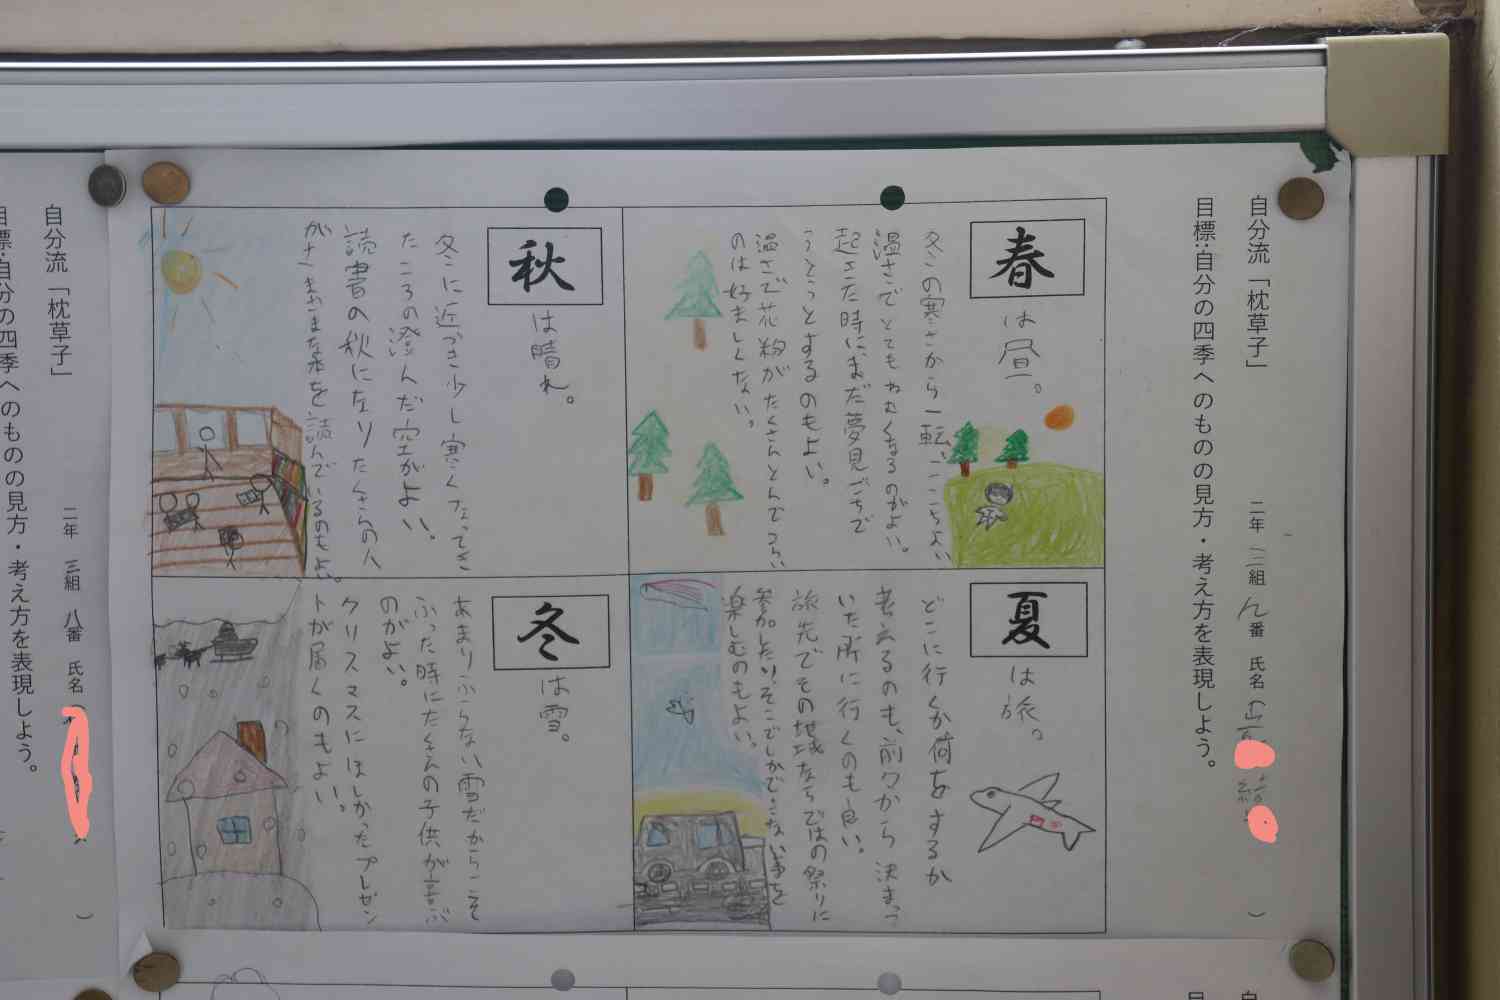 自分流「枕草子」
二年 三組 八番 氏名（
目標：自分の四季へのものの見方・考え方を表現しよう。
春
は昼。
冬の寒さから一転、ここちよい
温さでとてもねむくなるのがよい。
起きた時にまだ夢見ごちで
うとうとするのもよい。
温さで花粉がたくさんとんでつらい
のは好ましくない。
夏
は旅。
どこに行くか何をするか
考えるのも、前々から決まって
いた所に行くのも良い。
旅先でその地域ならではの祭りに
参加したり、そこでしかできない事を
楽しむのもよい。
秋
は晴れ。
冬に近づき少し寒くなってき
たころの澄んだ空がよい。
読書の秋になりたくさんの人
がさまざまな本を読んでいるのもよい。
冬
は雪。
あまりふらない雪だからこそ
ふった時にたくさんの子供が喜ぶ
のがよい。
クリスマスにほしかったプレゼン
トが届くのもよい。
自分流「枕草子」
二年 三組 八番 氏名（
）
目標：自分の四季へのものの見方・考え方を表現しよう。